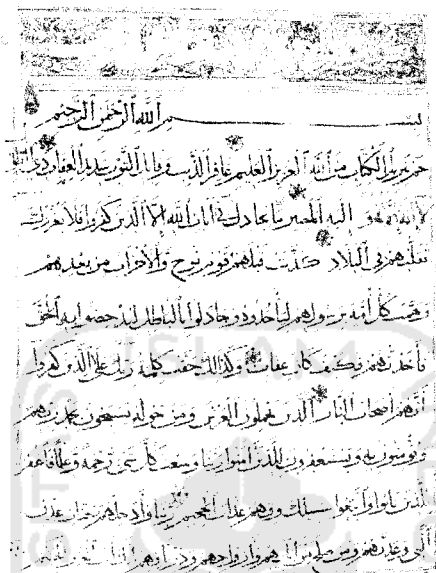 بسم الله الرحمن الرحيم
حم تنزيل الكتاب من الله العزيز العليم غافر الذنب وقابل التوب شديد العقاب ذي
لا اله الا هو اليه المصير ما يجادل في ايات الله الا الذين كفروا فلا يغررك
تقلبهم في البلاد كذبت قبلهم قوم نوح والاحزاب من بعدهم
وهمت كل امة برسولهم ليأخذوه وجادلوا بالباطل ليدحضوا به الحق
فأخذتهم فكيف كان عقاب وكذلك حقت كلمة ربك على الذين كفروا
انهم اصحاب النار الذين يحملون العرش ومن حوله يسبحون بحمد ربهم
ويؤمنون به ويستغفرون للذين امنوا ربنا وسعت كل شيء رحمة وعلما فاغفر
للذين تابوا واتبعوا سبيلك وقهم عذاب الجحيم ربنا وادخلهم جنات عدن
التي وعدتهم ومن صلح من ابائهم وازواجهم وذرياتهم انك انت العزيز
ISLAM